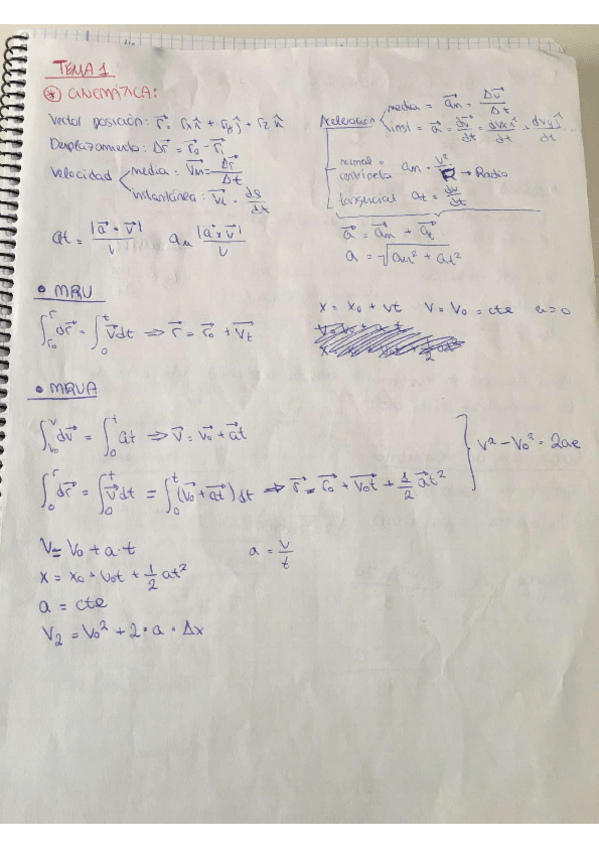 TEMA 1
* CINEMÁTICA:
Vector posición: r⃗ = r₁x̂ + r₂ĵ + r₂ k̂
Desplazamiento: Δr⃗ = r⃗₂ - r⃗₁
Velocidad
media: V⃗m = Δr⃗/Δt
instantánea: V⃗i = ds/dt
at = |a⃗ · v⃗|/v an |a⃗ x v⃗|/v
Aceleración
media = a⃗m = Δv⃗/Δt
inst = a⃗ =
normal = centrípeta an = v²/R → Radio
tangencial at = dv/dt
a⃗ = a⃗n + a⃗t
a = √an² + at²
• MRU
∫r₀^r dr⃗ = ∫0^t v⃗dt ⇒ r⃗ = r⃗₀ + v⃗t
x = x₀ + vt v = v₀ = cte a = 0
• MRUA
∫v₀^v dv⃗ = ∫0^t at ⇒ v⃗ = v⃗₀ + a⃗t
∫0^r dr⃗ = ∫0^t v⃗dt = ∫0^t (v⃗₀ + a⃗t) dt ⇒ r⃗ = r⃗₀ + v⃗₀t + 1/2 a⃗t²
} v² - v₀² = 2ae
V = V₀ + a · t a = v/t
x = x₀ + v₀t + 1/2 at²
a = cte
V₂ = V₀² + 2 · a · Δx